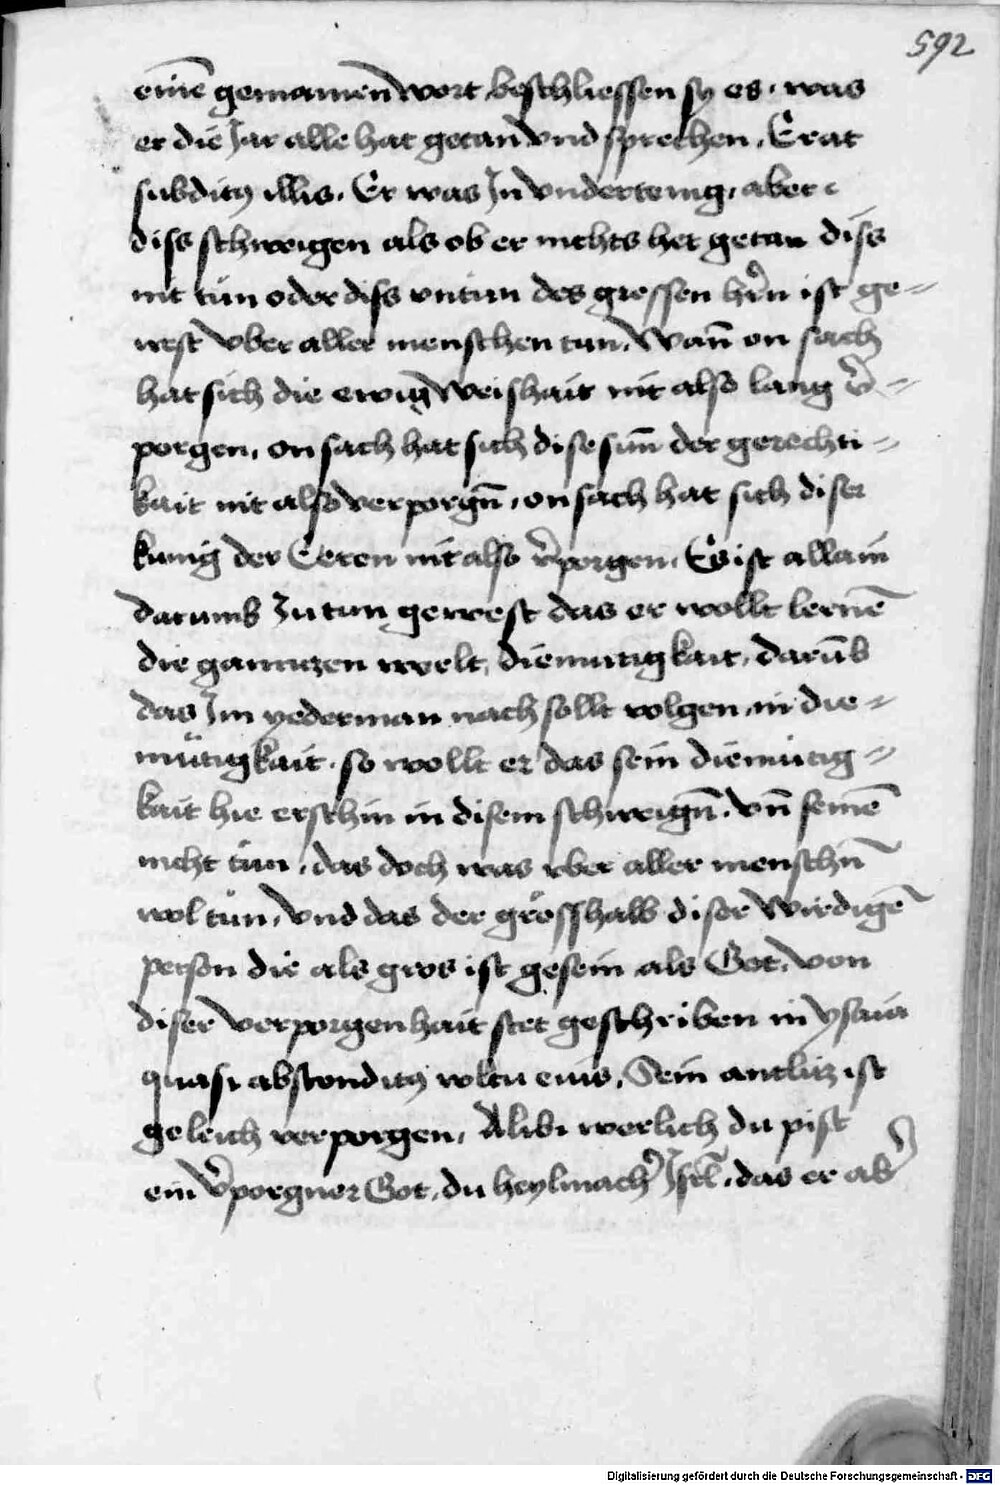 592
einē gemainen wort beschliessen sy es. was
er die Jar alle hat getan vnd sprechen. Erat
subditꝰ illis. Er was Jn vndertenig. aber
diss schweigen als ob er nichts het getan diss
nit tun oder diss vntun des grossen hr̄n ist ge-
west vber aller menschen tun. Wañ on sach
hat sich die ewig weishait nit also lang v̄-
porgen. on sach hat sich dise sunn der gerechti-
kait nit also verporgn̄. on sach hat sich diser
kunig der Eeren nit also v̄porgen. Es ist allain
darumb zu tun gewest das er wollt lernē
die ganntzen welt, diemutigkait, darūb
das Jm yederman nach sollt volgen in die-
mütigkait. so wollt er das sein diemutig-
kait hie erschin in disem schweign̄. vn̄ seinē
nicht tun. das doch was vber aller menschn̄
wol tun. vnd das der grösshalb diser wirdigē
person die als gros ist gesein als Got. von
diser verporgenhait stet geschriben in ysaia
quasi absconditꝰ vultu eius. Sein antlitz ist
geleich verporgen. Alibi werlich du pist
ein v̄porgner Got. du heylmach̄ Jsrl̄. das er ab̄
Digitalisierung gefördert durch die Deutsche Forschungsgemeinschaft - DFG